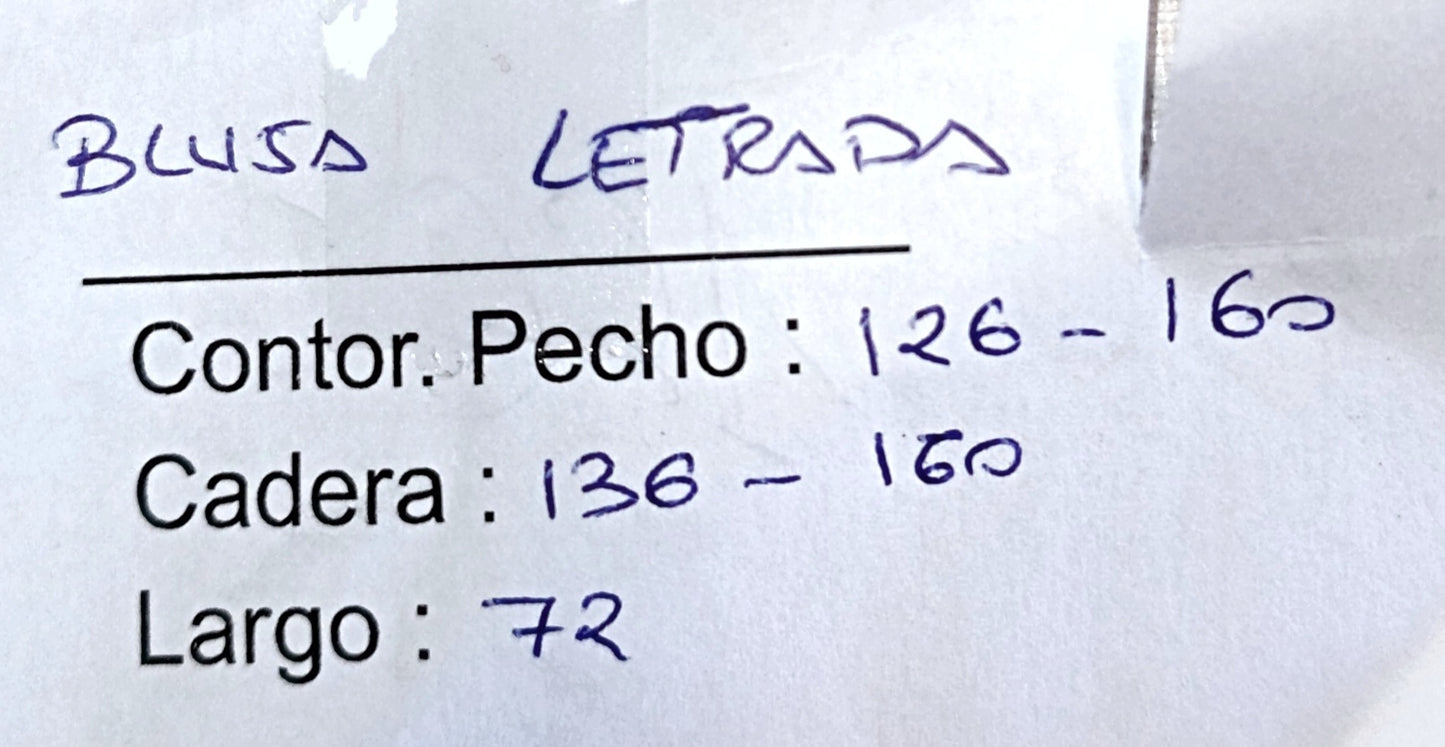 BLUSA LETRADA
Contor. Pecho : 126 - 160
Cadera : 136 - 160
Largo : 72